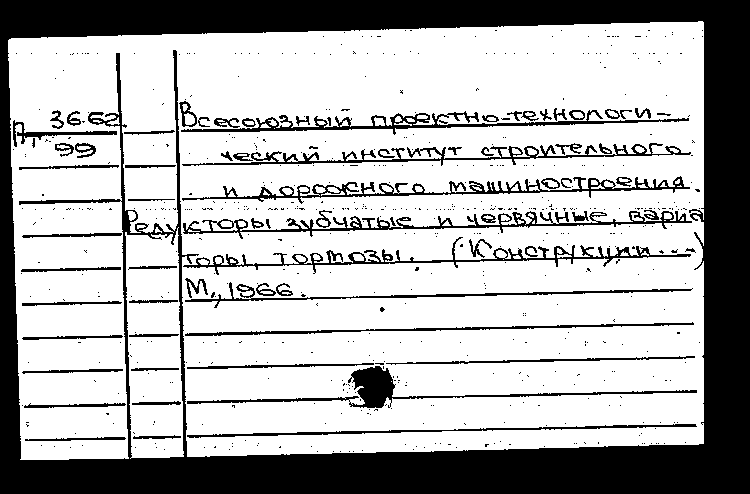 П, 36.62 Всесоюзный проектно-технологи-
99
ческий институт строительного
и дорожного машиностроения.
Редукторы зубчатые и червячные, вариа
торы, тормозы. (Конструкции...)
М., 1966.